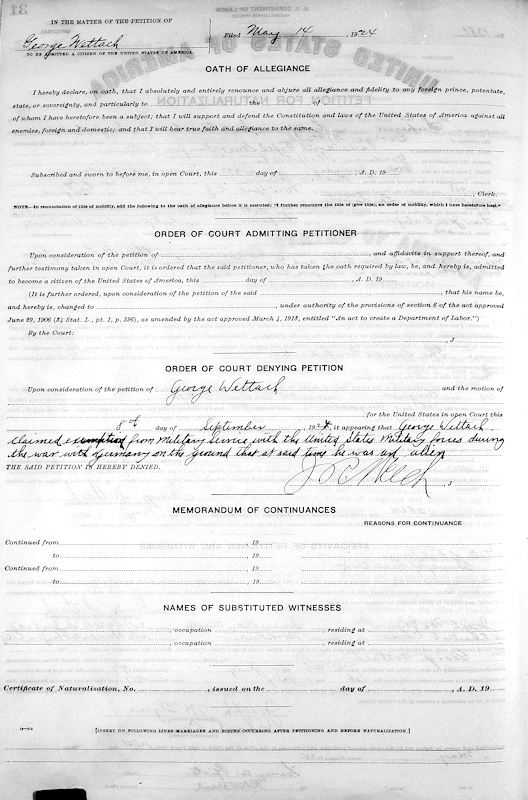 IN THE MATTER OF THE PETITION OF
George Wettach Filed May 14, 1924
TO BE ADMITTED A CITIZEN OF THE UNITED STATES OF AMERICA.
OATH OF ALLEGIANCE
I hereby declare, on oath, that I absolutely and entirely renounce and abjure all allegiance and fidelity to any foreign prince, potentate,
state, or sovereignty, and particularly to the of
of whom I have heretofore been a subject; that I will support and defend the Constitution and laws of the United States of America against all
enemies, foreign and domestic; and that I will bear true faith and allegiance to the same.
Subscribed and sworn to before me, in open Court, this day of , A. D. 19
, Clerk.
NOTE.—In renunciation of title of nobility, add the following to the oath of allegiance before it is executed: "I further renounce the title of (give title), an order of nobility, which I have heretofore held."
ORDER OF COURT ADMITTING PETITIONER
Upon consideration of the petition of , and affidavits in support thereof, and
further testimony taken in open Court, it is ordered that the said petitioner, who has taken the oath required by law, be, and hereby is, admitted
to become a citizen of the United States of America, this day of , A. D. 19
(It is further ordered, upon consideration of the petition of the said , that his name be,
and hereby is, changed to , under authority of the provisions of section 6 of the act approved
June 29, 1906 (34 Stat. L., pt. 1, p. 596), as amended by the act approved March 4, 1913, entitled "An act to create a Department of Labor.")
By the Court:
, J
ORDER OF COURT DENYING PETITION
Upon consideration of the petition of George Wettach and the motion of
for the United States in open Court this
8th day of September 1924, it appearing that George Wettach
claimed exemption from military service with the United States military forces during
the war with Germany on the ground that at said time he was an alien
THE SAID PETITION IS HEREBY DENIED.
, J
MEMORANDUM OF CONTINUANCES
REASONS FOR CONTINUANCE
Continued from , 19
to , 19
Continued from , 19
to , 19
NAMES OF SUBSTITUTED WITNESSES
, occupation , residing at
, occupation , residing at
Certificate of Naturalization, No. , issued on the day of , A. D. 19
[INSERT ON FOLLOWING LINES MARRIAGES AND BIRTHS OCCURRING AFTER PETITIONING AND BEFORE NATURALIZATION.]